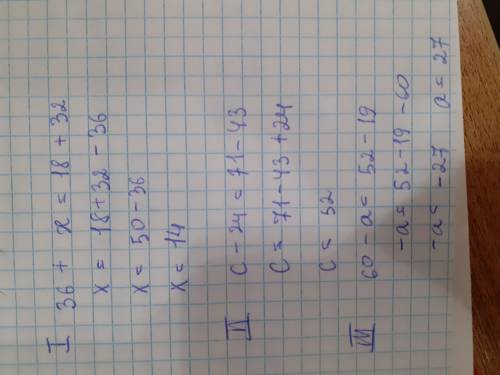 I 36 + x = 18 + 32
x = 18 + 32 - 36
x = 50 - 36
x = 14
II c - 24 = 71 - 43
c = 71 - 43 + 24
c = 52
III 60 - a = 52 - 19
-a = 52 - 19 - 60
-a = -27 a = 27